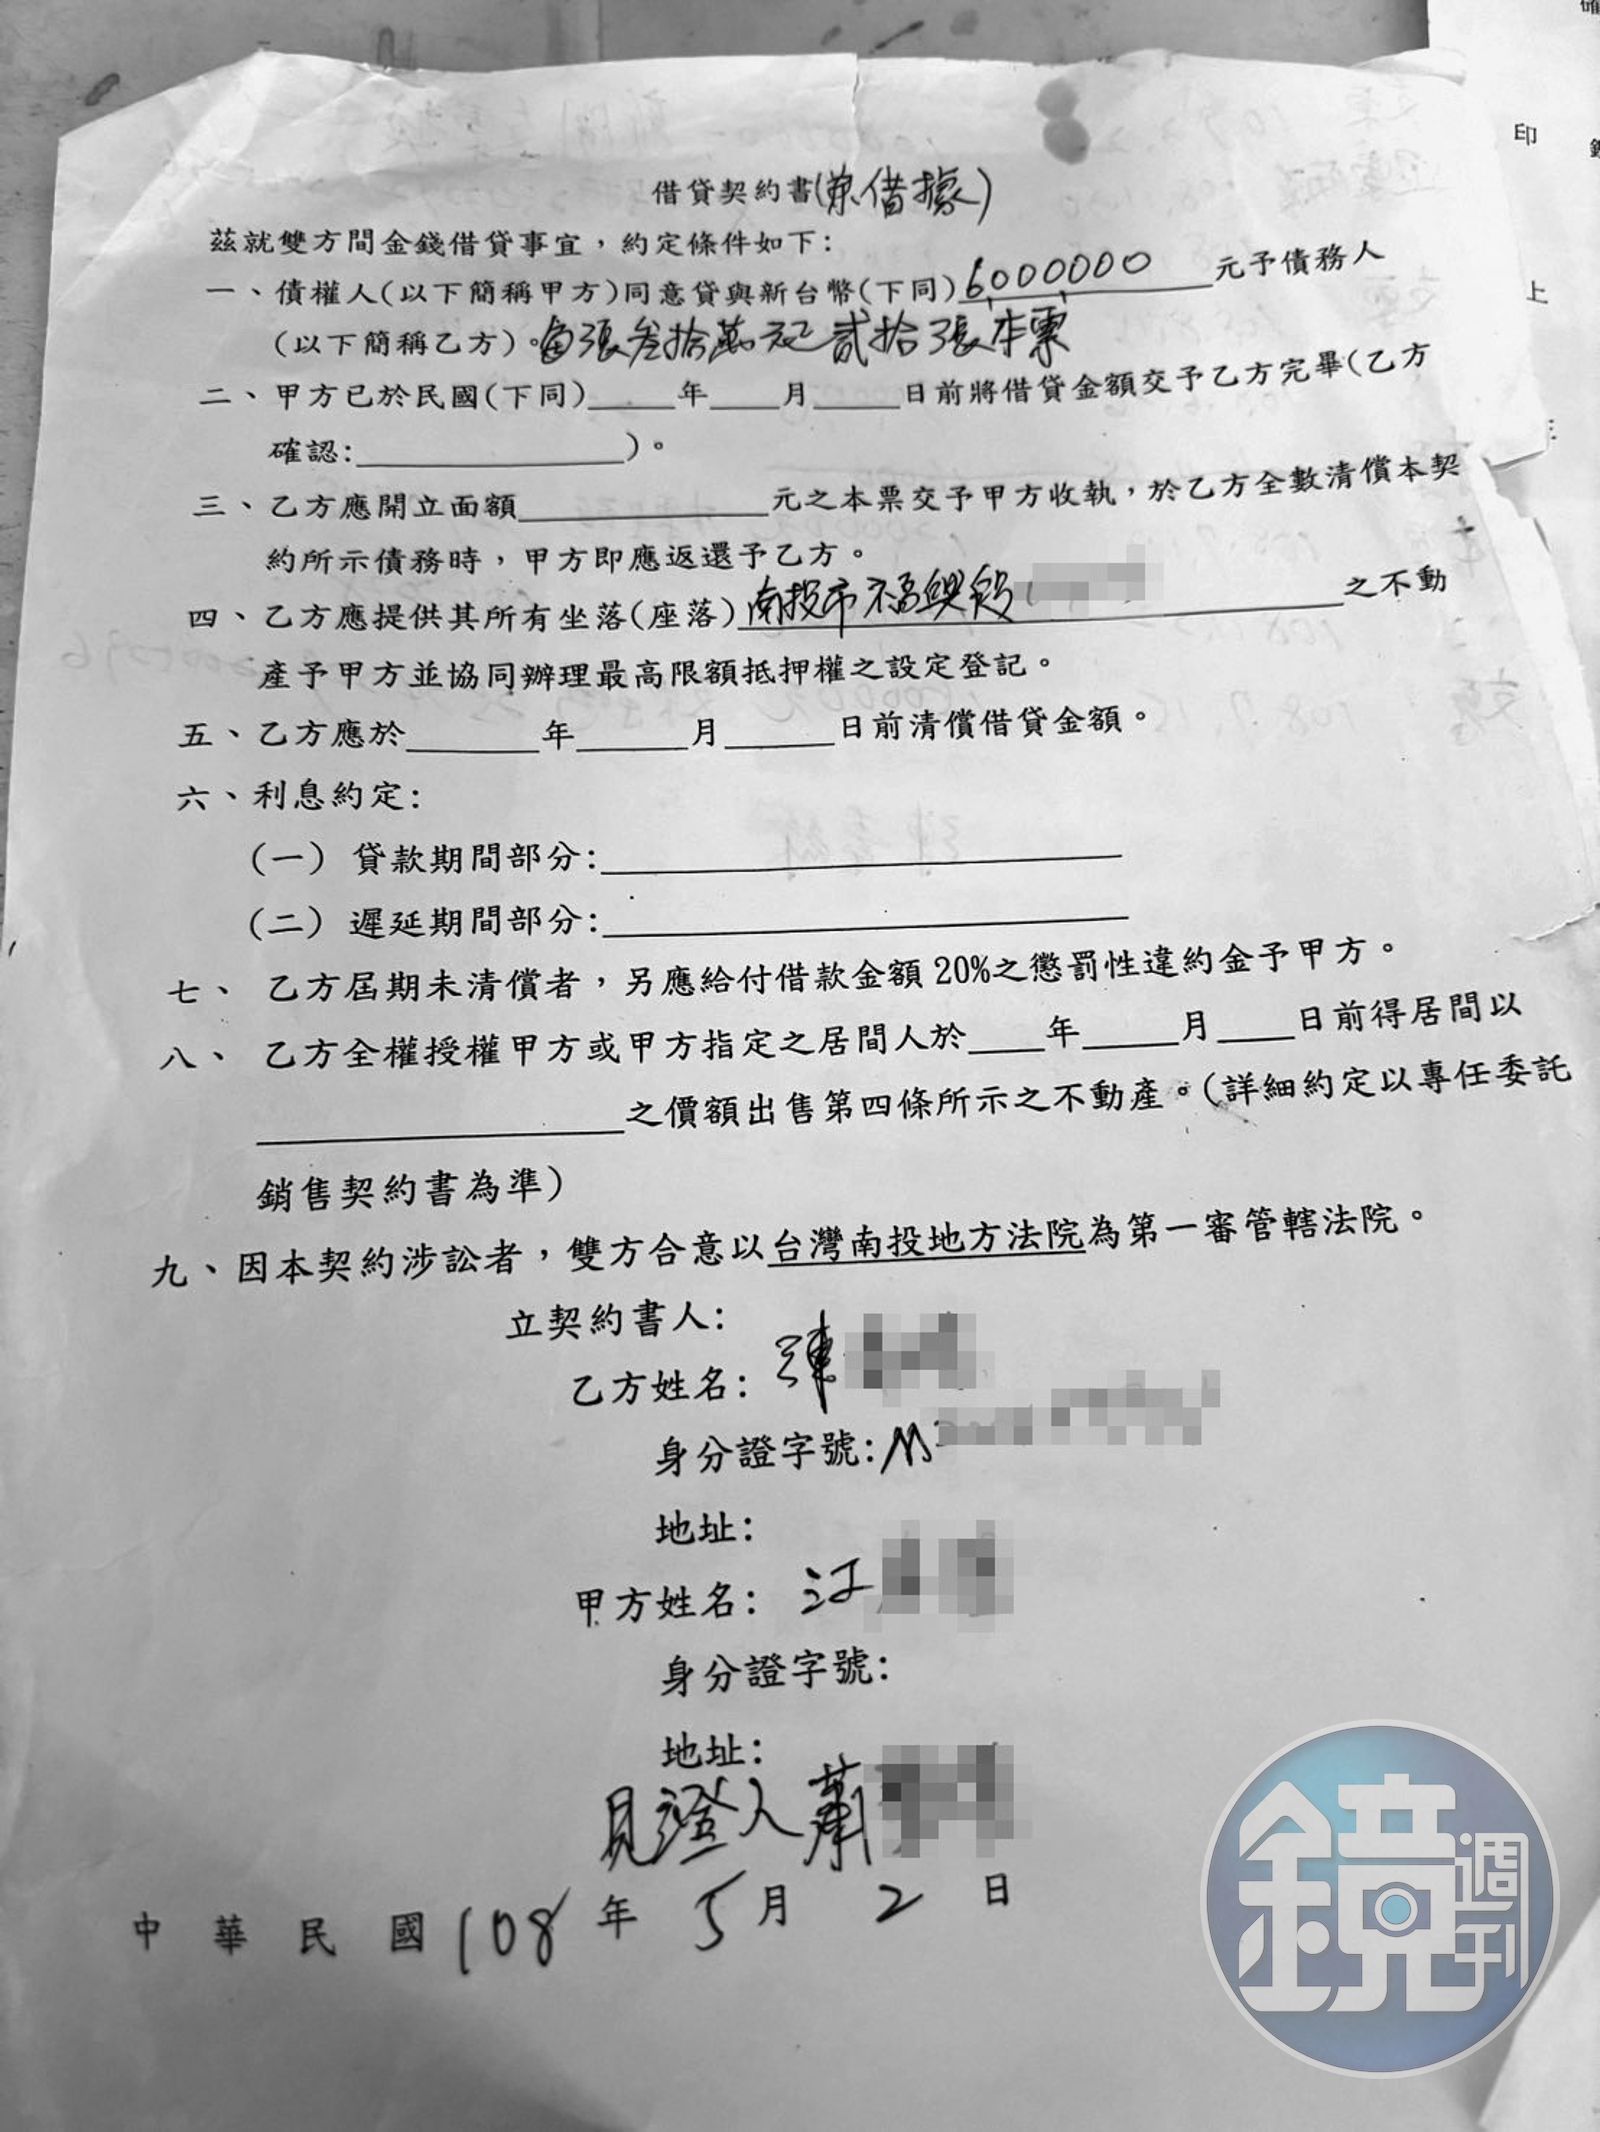 借貸契約書(兼借據)
茲就雙方間金錢借貸事宜，約定條件如下:
一、債權人(以下簡稱甲方)同意貸與新台幣(下同)6000000元予債務人
(以下簡稱乙方)。每張叁拾萬元 貳拾張本票
二、甲方已於民國(下同)_____年____月_____日前將借貸金額交予乙方完畢(乙方
確認:_______________)。
三、乙方應開立面額______________元之本票交予甲方收執，於乙方全數清償本契
約所示債務時，甲方即應返還予乙方。
四、乙方應提供其所有坐落(座落)南投市福興段 之不動
產予甲方並協同辦理最高限額抵押權之設定登記。
五、乙方應於_______年______月______日前清償借貸金額。
六、利息約定:
(一) 貸款期間部分:____________________________
(二) 遲延期間部分:____________________________
七、 乙方屆期未清償者，另應給付借款金額20%之懲罰性違約金予甲方。
八、 乙方全權授權甲方或甲方指定之居間人於____年_____月____日前得居間以
___________________之價額出售第四條所示之不動產。(詳細約定以專任委託
銷售契約書為準)
九、因本契約涉訟者，雙方合意以台灣南投地方法院為第一審管轄法院。
立契約書人:
乙方姓名: 陳
身分證字號: M
地址:
甲方姓名: 江
身分證字號:
地址:
見證人 蕭
中華民國108年5月2日
印
上
鏡週刊